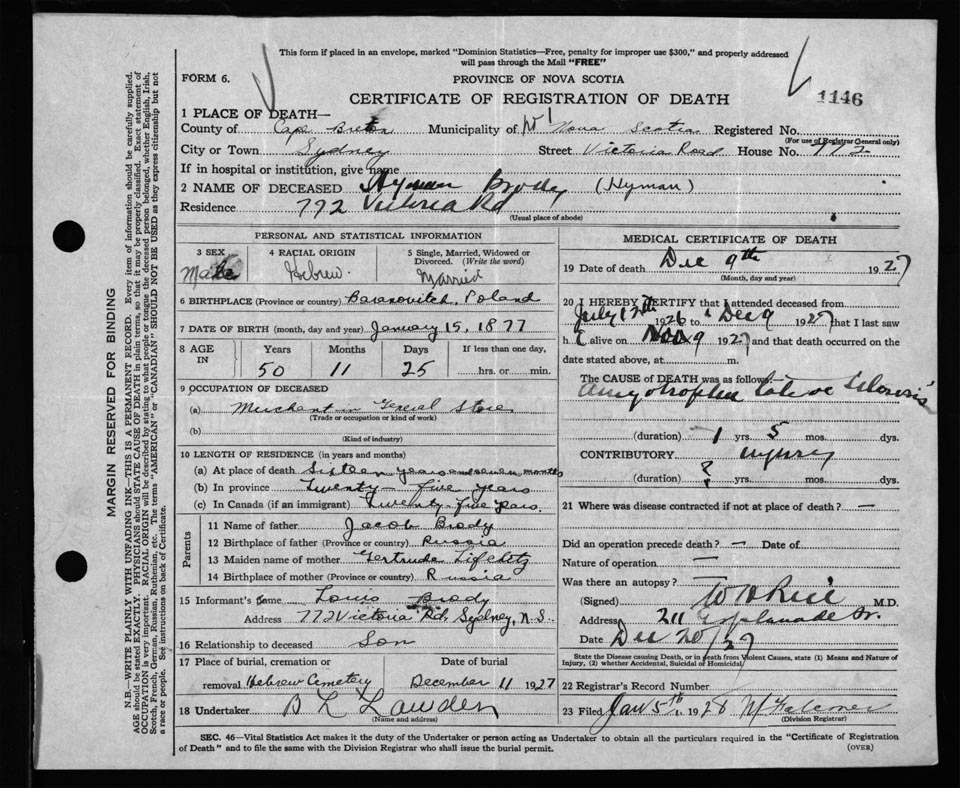 This form if placed in an envelope, marked "Dominion Statistics—Free, penalty for improper use $300," and properly addressed
will pass through the Mail "FREE"
FORM 6.
PROVINCE OF NOVA SCOTIA
CERTIFICATE OF REGISTRATION OF DEATH
1146
1 PLACE OF DEATH—
County of Cape Breton Municipality of No 1 Nova Scotia Registered No.
(For use of Registrar General only)
City or Town Sydney Street Victoria Road House No. 772
If in hospital or institution, give name
2 NAME OF DECEASED Hyman Brody (Hyman)
Residence 772 Victoria Rd
(Usual place of abode)
PERSONAL AND STATISTICAL INFORMATION
3 SEX 4 RACIAL ORIGIN 5 Single, Married, Widowed or
Divorced. (Write the word)
Male Hebrew. Married
6 BIRTHPLACE (Province or country) Baranovitch, Poland
7 DATE OF BIRTH (month, day and year) January 15, 1877
8 AGE IN Years Months Days If less than one day,
50 11 25 hrs. or min.
9 OCCUPATION OF DECEASED
(a) Merchant in General Store
(Trade or occupation or kind of work)
(b)
(Kind of industry)
10 LENGTH OF RESIDENCE (in years and months)
(a) At place of death Sixteen years and seven months
(b) In province Twenty-five years
(c) In Canada (if an immigrant) Twenty-five years.
Parents
11 Name of father Jacob Brody
12 Birthplace of father (Province or country) Russia
13 Maiden name of mother Gertrude
14 Birthplace of mother (Province or country) Russia
15 Informant's name Louis Brody
Address 772 Victoria Rd, Sydney, N.S.
16 Relationship to deceased Son
17 Place of burial, cremation or Date of burial
removal Hebrew Cemetery December 11 1927
18 Undertaker B L Lowden
(Name and address)
MEDICAL CERTIFICATE OF DEATH
19 Date of death Dec 9th 1927
(Month, day and year)
20 I HEREBY CERTIFY that I attended deceased from
July 12th 1926 to Dec 9 1927 that I last saw
h alive on 9 1927 and that death occurred on the
date stated above, at m.
The CAUSE OF DEATH was as follows:
Amyotrophic lateral Sclerosis
(duration) 1 yrs. 5 mos. dys.
CONTRIBUTORY injury
(duration) ? yrs. mos. dys.
21 Where was disease contracted if not at place of death? —
Did an operation precede death? — Date of
Nature of operation —
Was there an autopsy? —
(Signed) W Rice M.D.
Address 211 Esplanade St.
Date Dec 20/27
State the Disease causing Death, or in death from Violent Causes, state (1) Means and Nature of
Injury, (2) whether Accidental, Suicidal or Homicidal
22 Registrar's Record Number
23 Filed Jan 5th 1928
(Division Registrar)
SEC. 46—Vital Statistics Act makes it the duty of the Undertaker or person acting as Undertaker to obtain all the particulars required in the "Certificate of Registration
of Death" and to file the same with the Division Registrar who shall issue the burial permit.
(OVER)
MARGIN RESERVED FOR BINDING
N.B.—WRITE PLAINLY WITH UNFADING INK—THIS IS A PERMANENT RECORD. Every item of information should be carefully supplied.
AGE should be stated EXACTLY. PHYSICIANS should STATE CAUSE OF DEATH in plain terms, so that it may be properly classified. Exact statement of
OCCUPATION is very important. RACIAL ORIGIN will be described by stating to what people or tongue the deceased person belonged, whether English, Irish,
Scotch, French, German, Russian, Ruthenian, etc. The terms "AMERICAN" or "CANADIAN" SHOULD NOT BE USED as they express citizenship but not
a race or people. See instructions on back of Certificate.